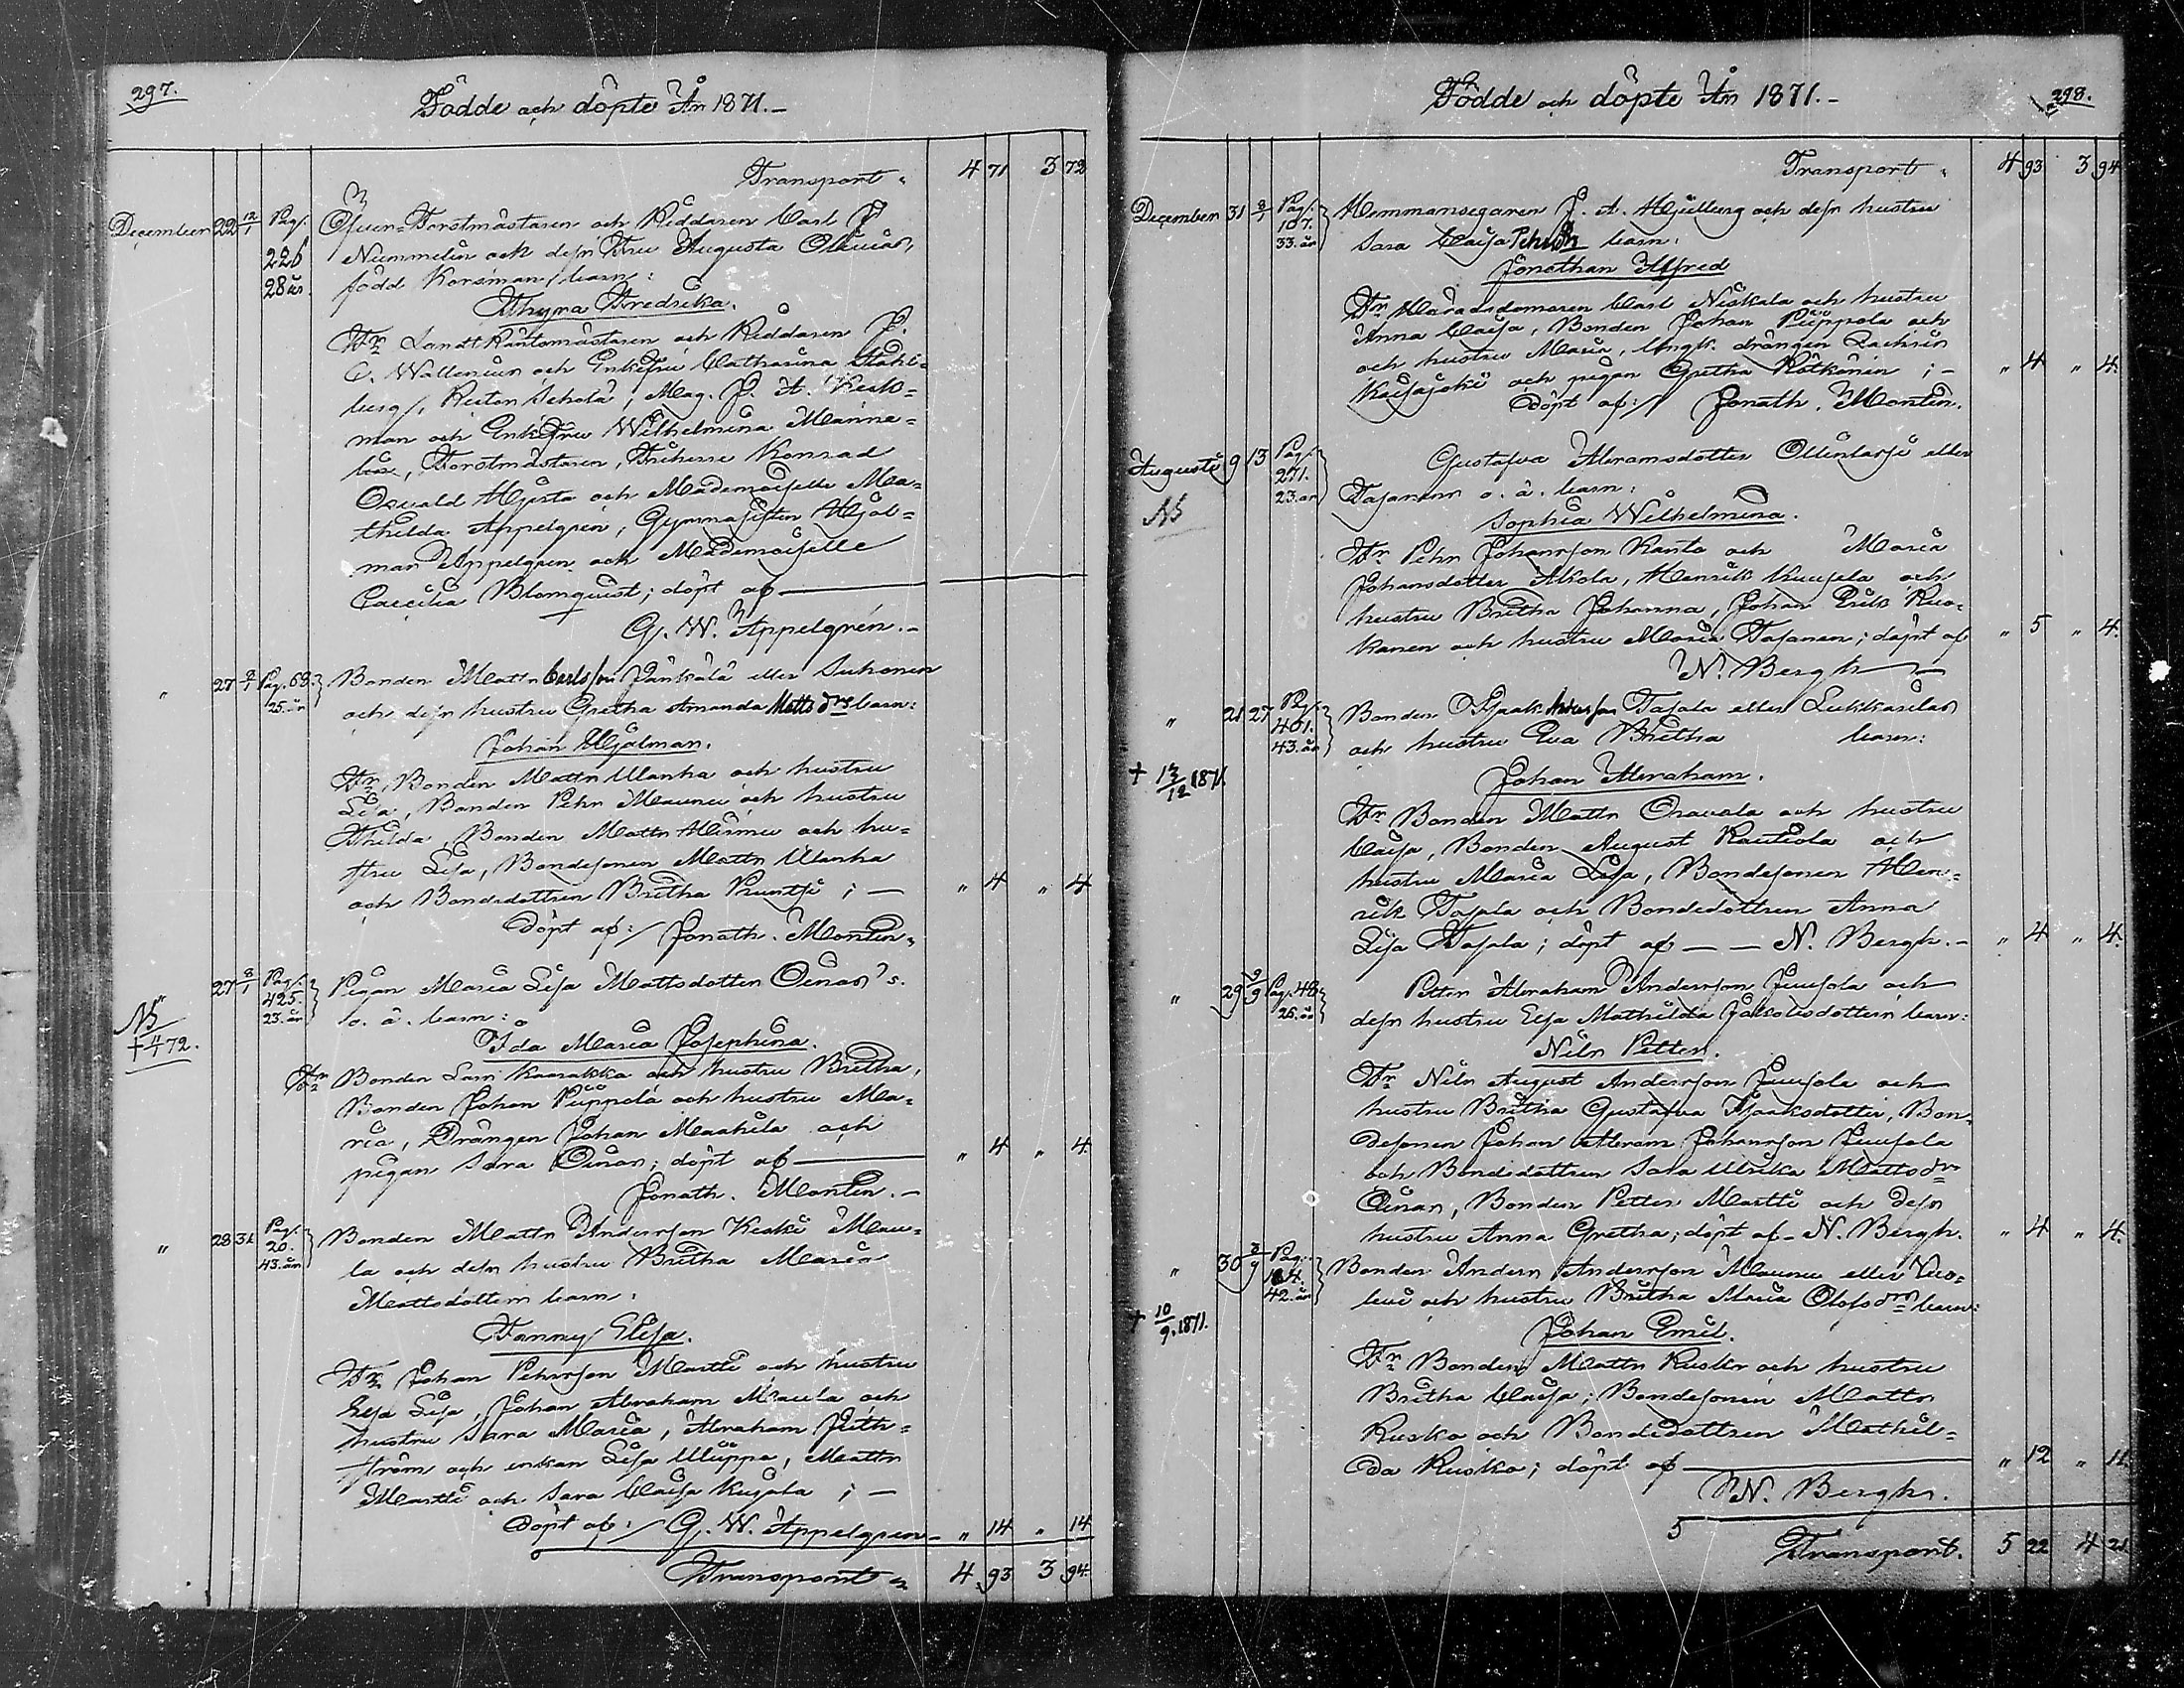 297.
Födde och döpte År 1871.-
Transport " 4 71 3 72
December 22 12/1 Pag. 226 28 år
Öfver-Forstmästaren och Riddaren Carl J.
Nummelin och dess Fru Augusta
född Korsman, barn:
Thyra Fredrika.
Fr. Landt Räntemästaren och Riddaren J.
C. Wallenius och Enkefru Catharina Stahl-
berg, Rector Scholæ, Mag. J. A. Heck-
man och Enkefru Wilhelmina Manne-
lin, Forstmästaren, Friherre Konrad
Osvald Hjerta och Mademoiselle Ma-
thilda Appelgren, Gymnasisten Hjal-
mar Appelgren och Mademoiselle
Caecilia Blomquist; döpt af
G. W. Appelgrén.-
" 27 2/1 Pag. 68. 25. år
Bonden Matts Carlsson Jänkälä eller Suhonen
och dess hustru Gretha Amanda Matts drs barn:
Johan Hjalmar.
Fr. Bonden Matts Wanha och hustru
Lisa, Bonden Pehr Maunu och hustru
Thilda, Bonden Matts Hirmu och hu-
stru Lisa, Bondesonen Matts Wanha
och Bondedottren Britha Pruntsi; - " 4 " 4
Döpt af:/ Jonath. Montin.
" 27 8/1 Pag. 425. 23. år
NB
+ 4/11 72.
Pigan Maria Lisa Mattsdotter Oinas's.
o. ä. barn:
Ida Maria Josephina.
Fr. Bonden Lars Kaarakka och hustru Britha,
Bonden Johan Piippola och hustru Ma-
ria, Drängen Johan Maahila och
pigan Sara Oinas; döpt af " 4 " 4.
Jonath. Montin.-
" 28 31 Pag. 20. 43. år
Bonden Matts Andersson Keski Mau-
la och dess hustru Britha Maria
Mattsdotters barn:
Fanny Elisa.
Fr. Johan Pehrsson Martti och hustru
Elsa Lisa, Johan Abraham Maula och
hustru Sara Maria, Abraham Juth-
ström och enkan Lisa Wiippa, Matts
Martti och Sara Caisa Kujala; -
Döpt af:/ G. W. Appelgren - " 14 " 14
Transport 4 93 3 94.
298.
Födde och döpte År 1871.-
Transport " 4 93 3 94
December 31 8/1 Pag. 107. 33. år
Hemmansegaren J. A. Hjulberg och dess hustru
Sara Caisa Pehrsdr barn:
Jonathan Alfred
Fr. Häradsdomaren Carl Niskala och hustru
Anna Caisa, Bonden Johan Piippola och
och hustru Maria, Ungk. drängen Zachris
Kaisajoki och pigan Gretha Rötkönen; - " 4 " 4.
Döpt af:/ Jonath. Montin.
Augusti 9 13 Pag. 271. 23. år
NB
Gustafva Abramsdotter Ollinlarsi eller
Tapanen o. ä. barn:
Sophia Wilhelmina.
Fr. Pehr Johansson Kanto och Maria
Johansdotter Alkola, Henrik Kuusela och
hustru Britha Johanna, Johan Erik Ruo-
kanen och hustru Maria Tapanen; döpt af " 5 " 4.
N. Bergh
" 21 27 Pag. 401. 43. år
+ 13/12 1871.
Bonden Isaak Andersson Tapala eller Lukkarila
och hustru Eva Britha barn:
Johan Abraham.
Fr. Bonden Matts Oravala och hustru
Caisa, Bonden August Rautiola och
hustru Maria Lisa, Bondesonen Hen-
rik Tapala och Bondedottren Anna
Lisa Tapala; döpt af - - N. Bergh.- " 4 " 4.
" 29 3/9 Pag. 48. 26. år
Petter Abraham Andersson Juusola och
dess hustru Elsa Mathilda Jakobsdotters barn:
Nils Petter.
Fr. Nils August Andersson Juusola och
hustru Britha Gustafva Isaaksdotter, Bon-
desonen Johan Abram Johansson Juusola
och Bondedottren Sara Ulrika Mattsdr
Oinas, Bonden Petter Martti och dess
hustru Anna Gretha; döpt af - N. Bergh. " 4 " 4.
" 30 3/9 Pag. 42. år
+ 10/9. 1871.
Bonden Anders Andersson Maunu eller Vuo-
levi och hustru Britha Maria Olofsdrs barn:
Johan Emil.
Fr. Bonden Matts Rusko och hustru
Britha Caisa; Bondesonen Matts
Rusko och Bondedottren Mathil-
da Rusko; döpt af " 12 " 11.
N. Bergh.
5
Transport. 5 22 4 21